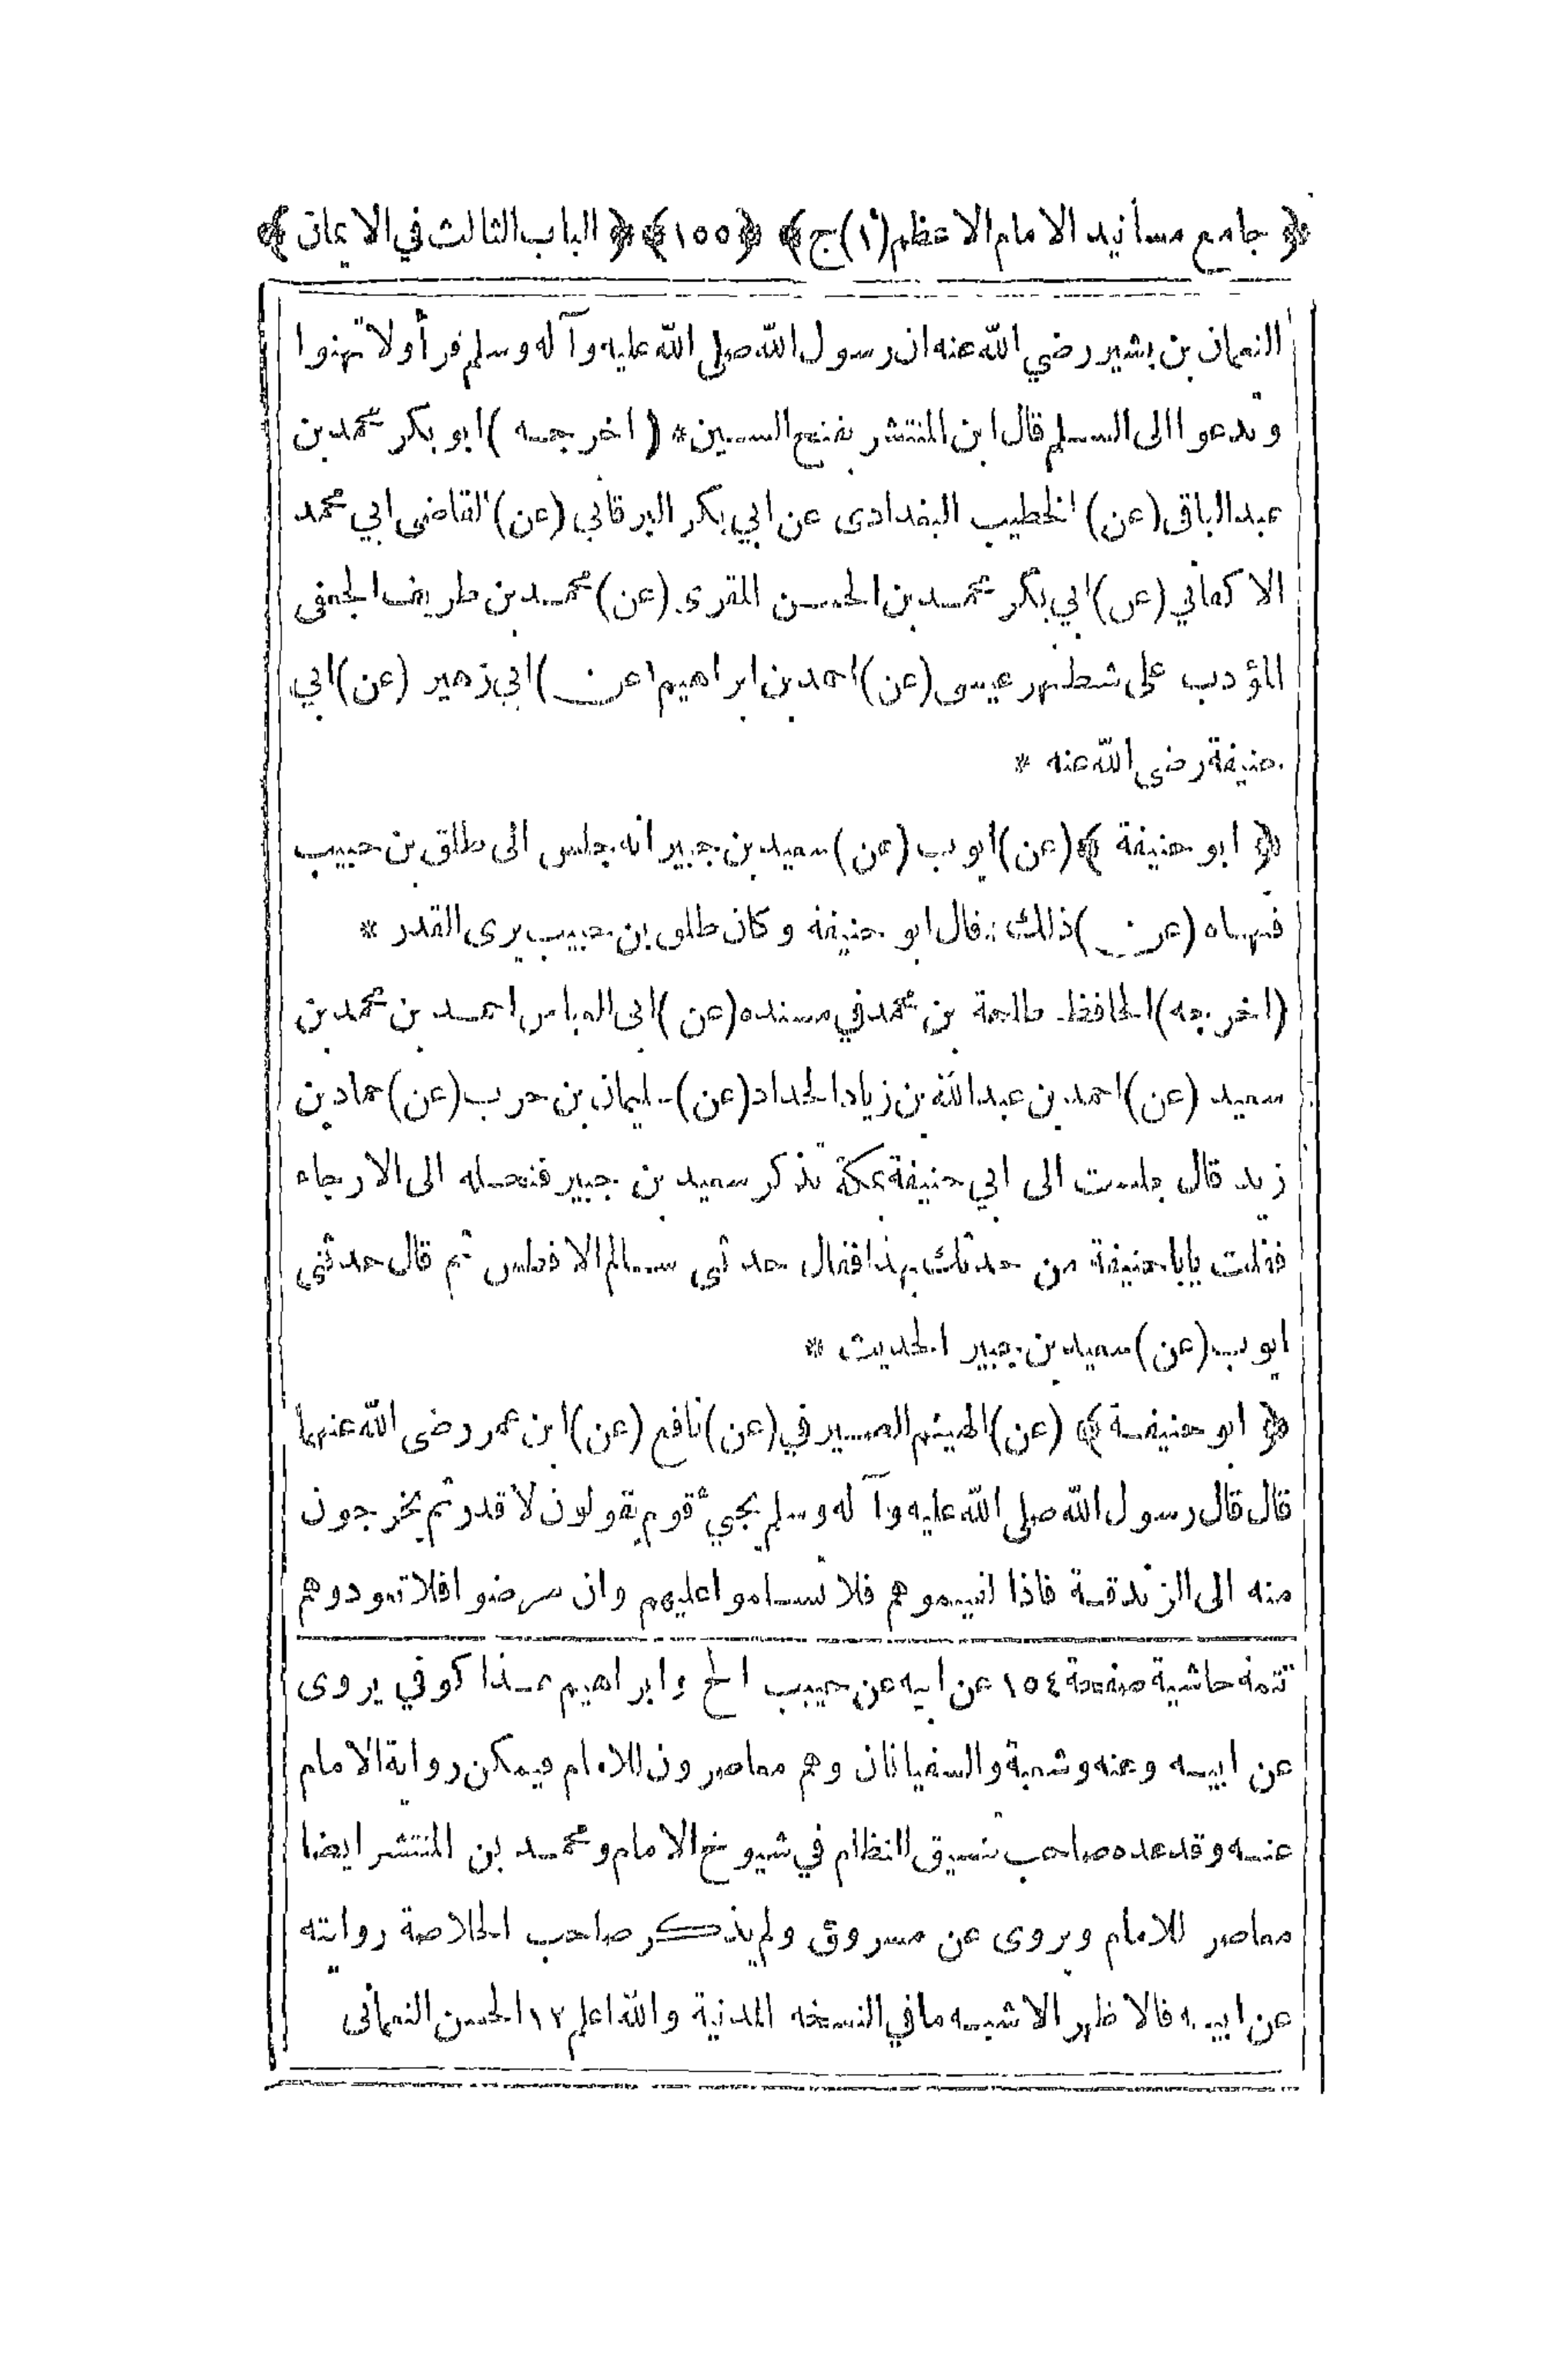 ﴿ جامع مسانيد الامام الاعظم (١) ج ﴾ ﴿ ١٥٥ ﴾ ﴿ الباب الثالث في الايمان ﴾
النعمان بن بشير رضي الله عنه ان رسول الله صلى الله عليه وآله وسلم قرأ ولا تهنوا
وتدعوا الى السلم قال ابن المنتشر بفتح السين * ( اخرجه ) ابو بكر محمد بن
عبد الباقي (عن) الخطيب البغدادى عن ابي بكر البرقاني (عن) القاضى ابي محمد
الاكفاني (عن) ابي بكر محمد بن الحسن المقرى (عن) محمد بن طريف الجعفى
المؤدب على شط نهر عيسى (عن) احمد بن ابراهيم (عن) ابي زهير (عن) ابي
حنيفة رضي الله عنه *
﴿ ابو حنيفة ﴾ (عن) ايوب (عن) سعيد بن جبير انه جلس الى طلق بن حبيب
فنهاه (عن) ذلك : قال ابو حنيفة وكان طلق بن حبيب يرى القدر *
(اخرجه) الحافظ طلحة بن محمد في مسنده (عن) ابى العباس احمد بن محمد بن
سعيد (عن) احمد بن عبد الله بن زياد الحداد (عن) سليمان بن حرب (عن) حماد بن
زيد قال جلست الى ابي حنيفة بمكة تذكر سعيد بن جبير فنحله الى الارجاء
فقلت يابا حنيفة من حدثك بهذا فقال حدثني سالم الافطس ثم قال حدثني
ايوب (عن) سعيد بن جبير الحديث *
﴿ ابو حنيفة ﴾ (عن) الهيثم الصيرفي (عن) نافع (عن) ابن عمر رضى الله عنهما
قال قال رسول الله صلى الله عليه وآله وسلم يجيء قوم يقولون لا قدر ثم يخرجون
منه الى الزندقة فاذا لقيتموهم فلا تسلموا عليهم وان مرضوا فلا تعودوهم
تتمة حاشية صفحة ١٥٤ عن ابيه عن حبيب الخ وابراهيم هذا كوفي يروى
عن ابيه وعنه وشعبة والسفيانان وهم معاصرون للامام فيمكن رواية الامام
عنه وقد عده صاحب تنسيق النظام في شيوخ الامام ومحمد بن المنتشر ايضا
معاصر للامام ويروى عن مسروق ولم يذكر صاحب الخلاصة روايته
عن ابيه فالاظهر الاشبه ما في النسخه المدنية والله اعلم ١٢ الحسن النعمانى